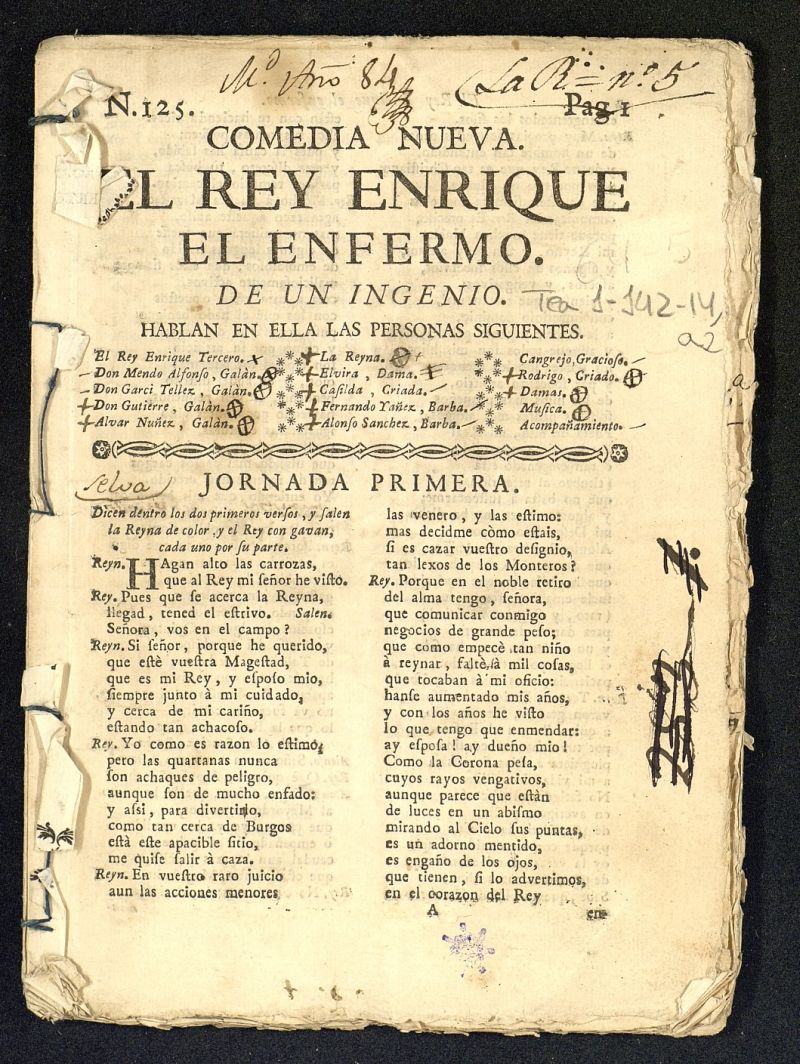 Md Año 84
La Rl = no. 5
N.125.
Pag 1
COMEDIA NUEVA.
EL REY ENRIQUE
EL ENFERMO.
DE UN INGENIO.
Tea 1-142-14,
a2
HABLAN EN ELLA LAS PERSONAS SIGUIENTES.
El Rey Enrique Tercero.
Don Mendo Alfonso, Galàn.
Don Garci Tellez, Galàn.
Don Gutierre, Galàn.
Alvar Nuñez, Galàn.
La Reyna.
Elvira, Dama.
Casilda, Criada.
Fernando Yañez, Barba.
Alonso Sanchez, Barba.
Cangrejo, Gracioso.
Rodrigo, Criado.
Damas.
Musica.
Acompañamiento.
selva
JORNADA PRIMERA.
Dicen dentro los dos primeros versos, y salen
la Reyna de color, y el Rey con gavan,
cada uno por su parte.
Reyn. HAgan alto las carrozas,
que al Rey mi señor he visto.
Rey. Pues que se acerca la Reyna,
llegad, tened el estrivo. Salen.
Señora, vos en el campo?
Reyn. Si señor, porque he querido,
que estè vuestra Magestad,
que es mi Rey, y esposo mio,
siempre junto à mi cuidado,
y cerca de mi cariño,
estando tan achacoso.
Rey. Yo como es razon lo estimo,
pero las quartanas nunca
son achaques de peligro,
aunque son de mucho enfado:
y assi, para divertirlo,
como tan cerca de Burgos
està este apacible sitio,
me quise salir à caza.
Reyn. En vuestro raro juicio
aun las acciones menores
las venero, y las estimo:
mas decidme còmo estais,
si es cazar vuestro designio,
tan lexos de los Monteros?
Rey. Porque en el noble retiro
del alma tengo, señora,
que comunicar conmigo
negocios de grande peso;
que como empecè tan niño
à reynar, faltè à mil cosas,
que tocaban à mi oficio:
hanse aumentado mis años,
y con los años he visto
lo que tengo que enmendar:
ay esposa! ay dueño mio!
Como la Corona pesa,
cuyos rayos vengativos,
aunque parece que estàn
de luces en un abismo
mirando al Cielo sus puntas,
es un adorno mentido,
es engaño de los ojos,
que tienen, si lo advertimos,
en el corazon del Rey
A
en-